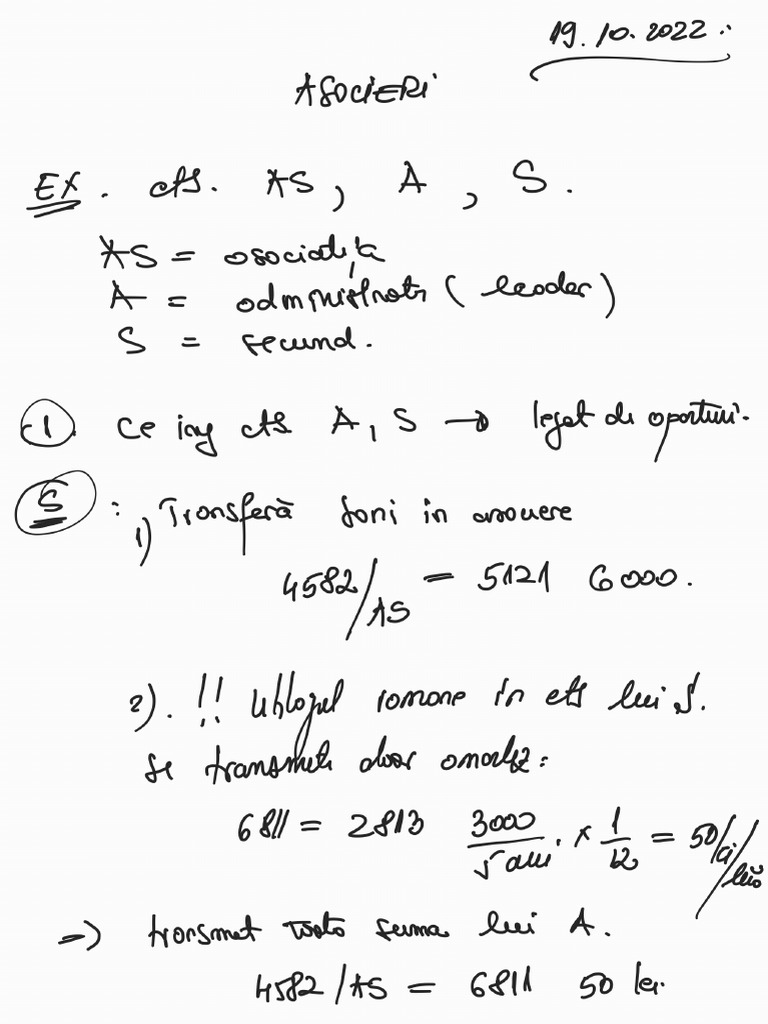 19.10.2022
ASOCIERI
EX. ctb. AS, A, S.
AS = asociația
A = administrator (leader)
S = secund.
1. Ce înreg ctb A, S → legat de oportuni.
S : 1) Transferă bani în asociere
4582/AS = 5121 6000.
2). !! Utilajul rămâne în ctb lui S.
Se transmite doar amortiz:
6811 = 2813 3000/5 ani × 1/12 = 50 lei/lună
=) transmit toată suma lui A.
4582/AS = 6811 50 lei.